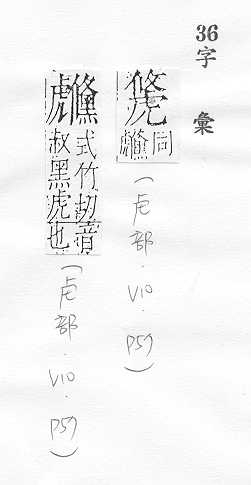 36字彙
同虪
(虍部.V10.P59)
虪式竹切音
叔黑虎也
(虍部.V10.P59)